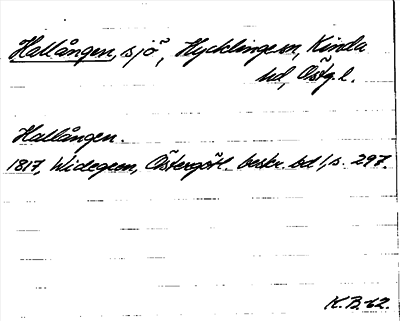 Hallången, sjö, Hycklingem, Kinda
hd, Östg. l.
Hallången.
1817, Widegren, Östergötl. beskr. bd 1, s. 297.
K.B. 62.